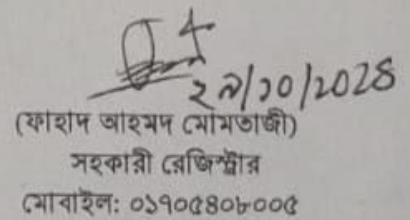 ২৯/১০/২০২৪
(ফাহাদ আহমদ মোমতাজী)
সহকারী রেজিস্ট্রার
মোবাইল: ০১৭০৫৪০৮০০৫